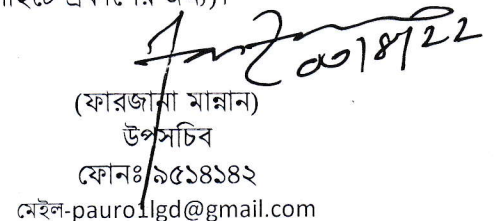 ০৩/৪/২২
(ফারজানা মান্নান)
উপসচিব
ফোনঃ ৯৫১৪১৪২
মেইল-pauro1lgd@gmail.com